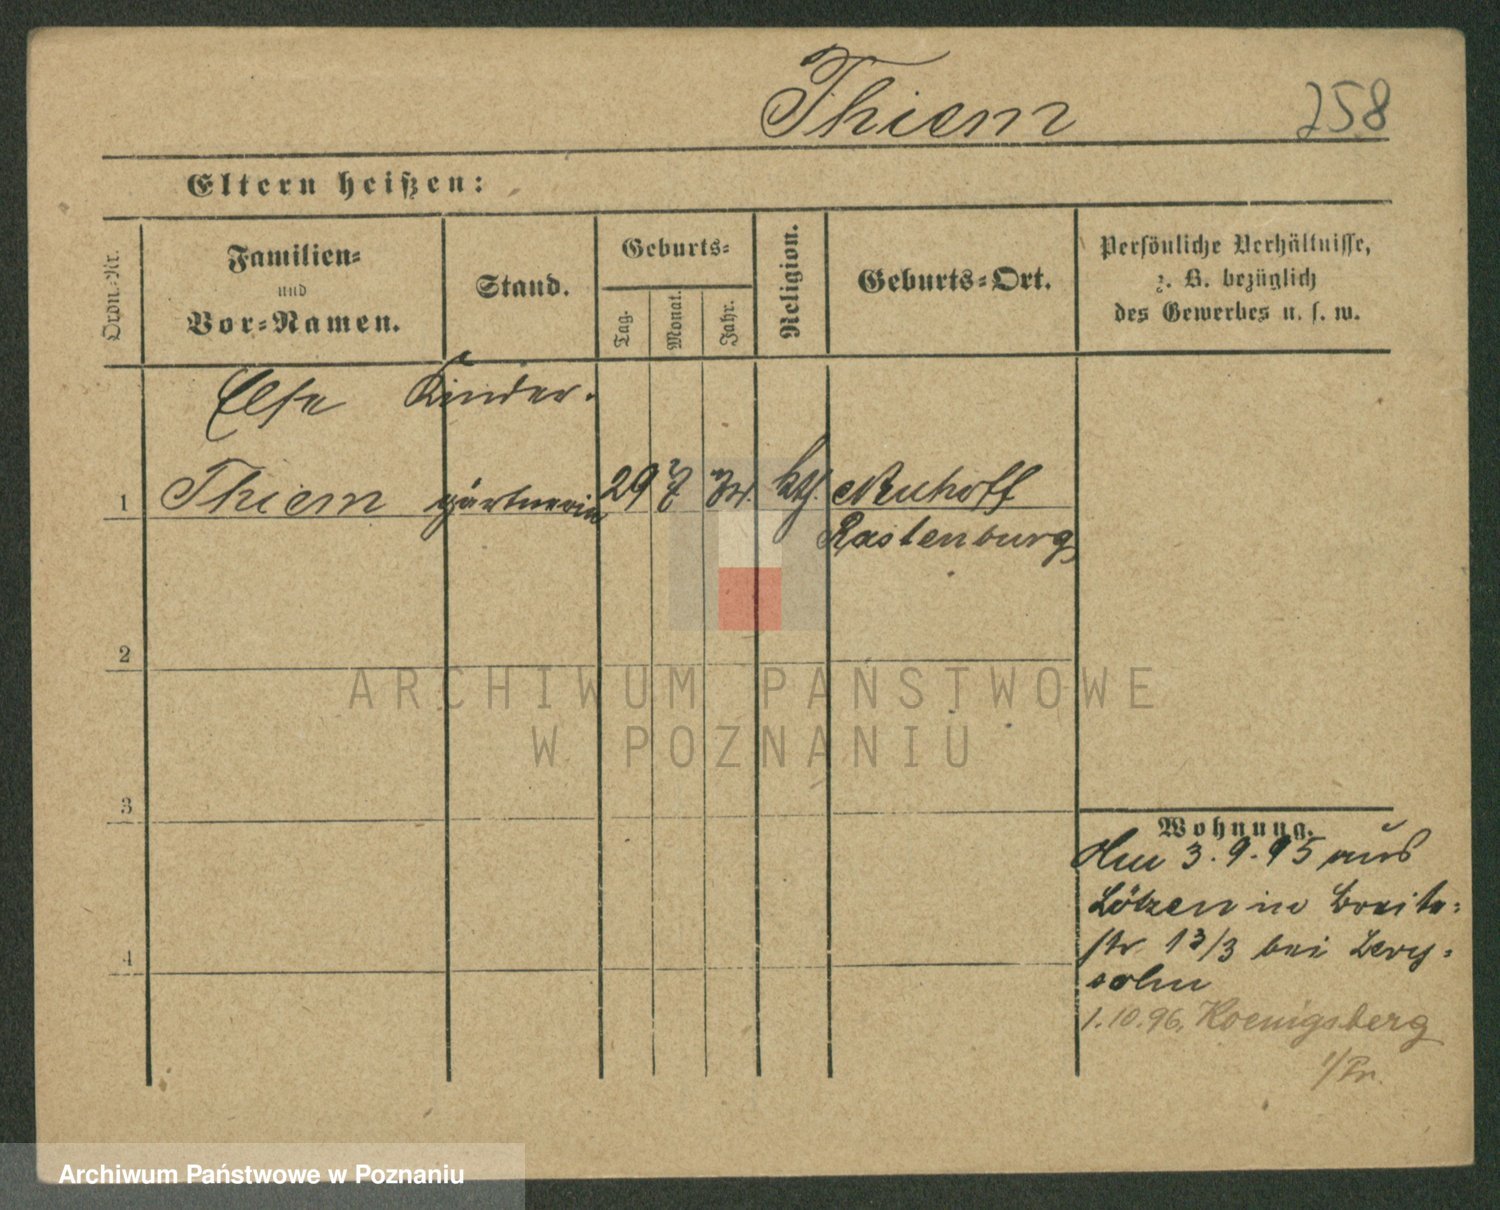 Thiem 258
Eltern heißen:
Ordn.-Nr.
Familien-
und
Vor-Namen.
Stand.
Geburts-
Tag.
Monat.
Jahr.
Religion.
Geburts-Ort.
Persönliche Verhältnisse,
z. B. bezüglich
des Gewerbes u. s. w.
Else Kinder-
1 Thiem gärtnerin 29 7 kth. Neuhoff
Rastenburg
2
3
4
Wohnung.
Am 3.9.95 aus
Lötzen in Breite-
str. 13/3 bei Levy-
sohn
1.10.96. Koenigsberg
i/Pr.
ARCHIWUM PAŃSTWOWE
W POZNANIU
Archiwum Państwowe w Poznaniu